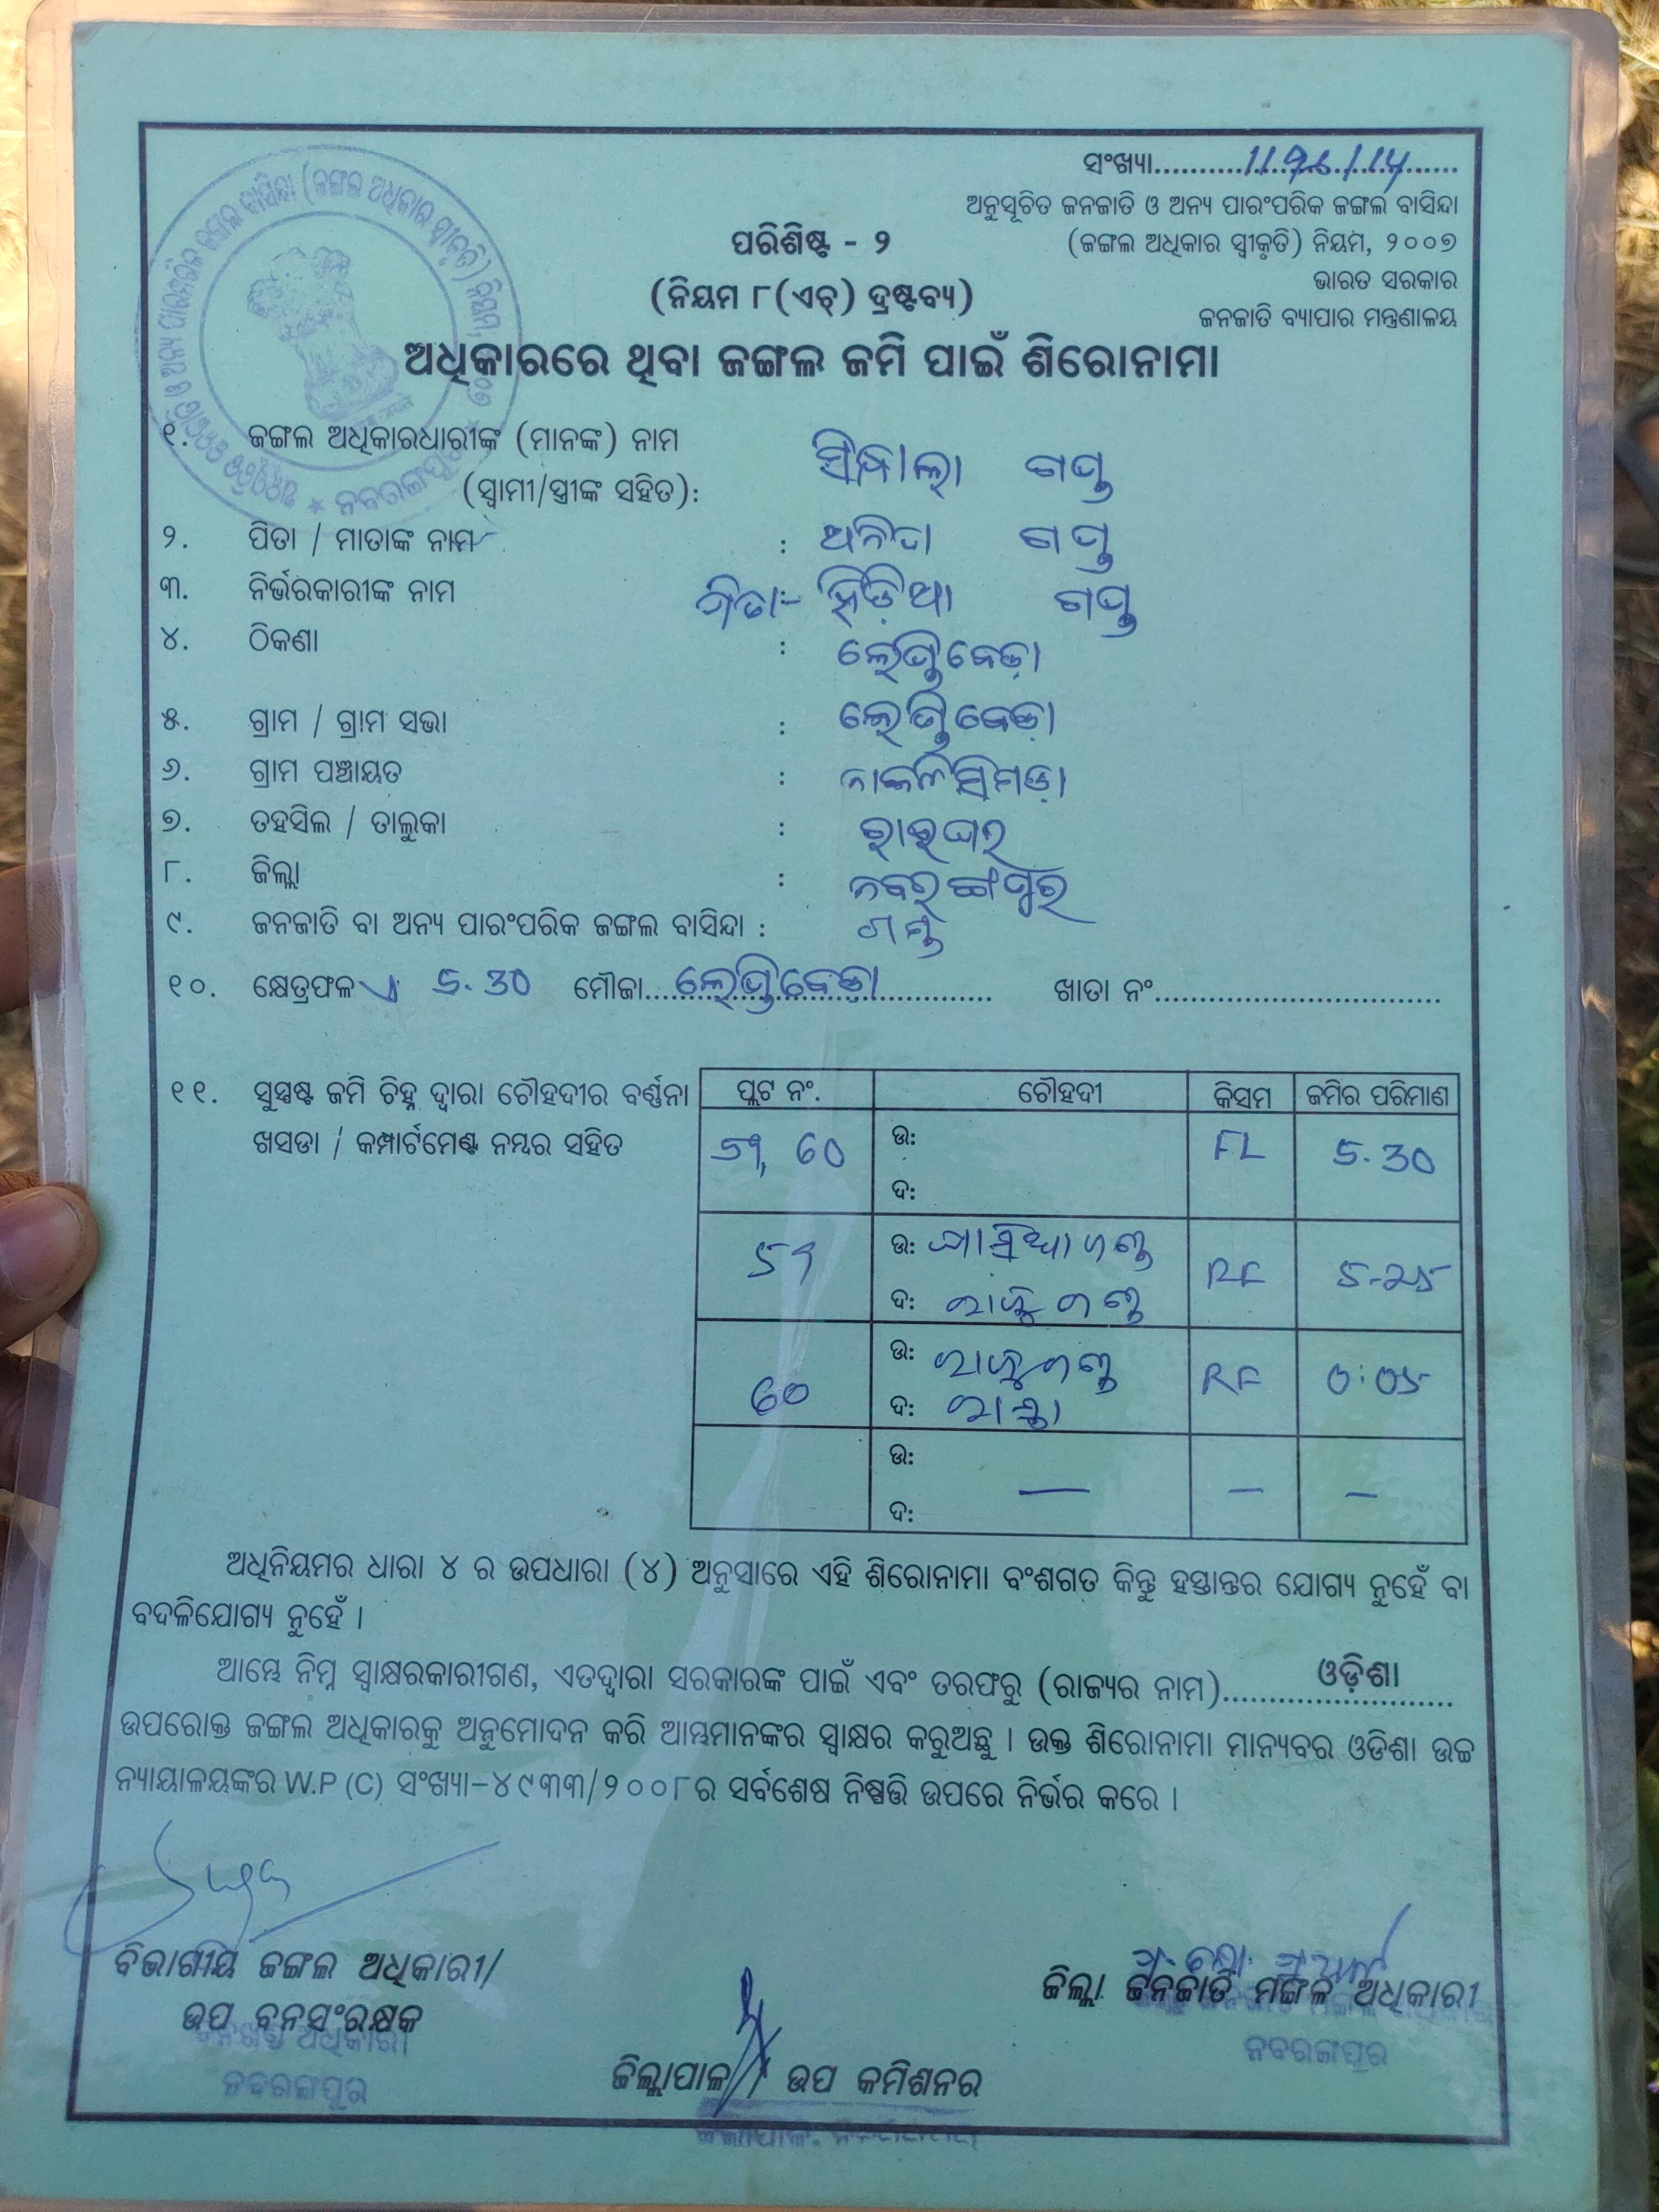 ସଂଖ୍ୟା..........1196/14......
ଅନୁସୂଚିତ ଜନଜାତି ଓ ଅନ୍ୟ ପାରଂପରିକ ଜଙ୍ଗଲ ବାସିନ୍ଦା
(ଜଙ୍ଗଲ ଅଧିକାର ସ୍ୱୀକୃତି) ନିୟମ, ୨୦୦୭
ଭାରତ ସରକାର
ଜନଜାତି ବ୍ୟାପାର ମନ୍ତ୍ରଣାଳୟ
ପରିଶିଷ୍ଟ - ୨
(ନିୟମ ୮(ଏଚ୍) ଦ୍ରଷ୍ଟବ୍ୟ)
ଅଧିକାରରେ ଥିବା ଜଙ୍ଗଲ ଜମି ପାଇଁ ଶିରୋନାମା
୧. ଜଙ୍ଗଲ ଅଧିକାରଧାରୀଙ୍କ (ମାନଙ୍କ) ନାମ
(ସ୍ୱାମୀ/ସ୍ତ୍ରୀଙ୍କ ସହିତ): ଗଣ୍ଡ
୨. ପିତା / ମାତାଙ୍କ ନାମ : ଗଣ୍ଡ
୩. ନିର୍ଭରକାରୀଙ୍କ ନାମ : ପିତା- ହିଡ଼ିଆ ଗଣ୍ଡ
୪. ଠିକଣା : ଲେଣ୍ଡିବେଡ଼ା
୫. ଗ୍ରାମ / ଗ୍ରାମ ସଭା : ଲେଣ୍ଡିବେଡ଼ା
୬. ଗ୍ରାମ ପଞ୍ଚାୟତ :
୭. ତହସିଲ / ତାଲୁକା : ରାଇଘର
୮. ଜିଲ୍ଲା : ନବରଙ୍ଗପୁର
୯. ଜନଜାତି ବା ଅନ୍ୟ ପାରଂପରିକ ଜଙ୍ଗଲ ବାସିନ୍ଦା : ଗଣ୍ଡ
୧୦. କ୍ଷେତ୍ରଫଳ ଏ 5.30 ମୌଜା....ଲେଣ୍ଡିବେଡ଼ା.......... ଖାତା ନଂ..............................
୧୧. ସୁସ୍ପଷ୍ଟ ଜମି ଚିହ୍ନ ଦ୍ୱାରା ଚୌହଦୀର ବର୍ଣ୍ଣନା
ଖସଡା / କମ୍ପାର୍ଟମେଣ୍ଟ ନମ୍ବର ସହିତ
ପ୍ଲଟ ନଂ. ଚୌହଦୀ କିସମ ଜମିର ପରିମାଣ
59, 60 ଉ: FL 5.30
ଦ:
59 ଉ: ଗଣ୍ଡ RF 5-25
ଦ: ଗଣ୍ଡ
60 ଉ: ଗଣ୍ଡ RF 0:05
ଦ: ରାସ୍ତା
ଉ: — — —
ଦ:
ଅଧିନିୟମର ଧାରା ୪ ର ଉପଧାରା (୪) ଅନୁସାରେ ଏହି ଶିରୋନାମା ବଂଶଗତ କିନ୍ତୁ ହସ୍ତାନ୍ତର ଯୋଗ୍ୟ ନୁହେଁ ବା
ବଦଳିଯୋଗ୍ୟ ନୁହେଁ ।
ଆମ୍ଭେ ନିମ୍ନ ସ୍ୱାକ୍ଷରକାରୀଗଣ, ଏତଦ୍ୱାରା ସରକାରଙ୍କ ପାଇଁ ଏବଂ ତରଫରୁ (ରାଜ୍ୟର ନାମ)........ଓଡ଼ିଶା........
ଉପରୋକ୍ତ ଜଙ୍ଗଲ ଅଧିକାରକୁ ଅନୁମୋଦନ କରି ଆମ୍ଭମାନଙ୍କର ସ୍ୱାକ୍ଷର କରୁଅଛୁ । ଉକ୍ତ ଶିରୋନାମା ମାନ୍ୟବର ଓଡିଶା ଉଚ୍ଚ
ନ୍ୟାୟାଳୟଙ୍କର W.P (C) ସଂଖ୍ୟା-୪୯୩୩/୨୦୦୮ର ସର୍ବଶେଷ ନିଷ୍ପତ୍ତି ଉପରେ ନିର୍ଭର କରେ ।
ବିଭାଗୀୟ ଜଙ୍ଗଲ ଅଧିକାରୀ/
ଉପ ବନସଂରକ୍ଷକ
ନବରଙ୍ଗପୁର
ଜିଲ୍ଲାପାଳ / ଉପ କମିଶନର
ଜିଲ୍ଲା ଜନଜାତି ମଙ୍ଗଳ ଅଧିକାରୀ
ନବରଙ୍ଗପୁର